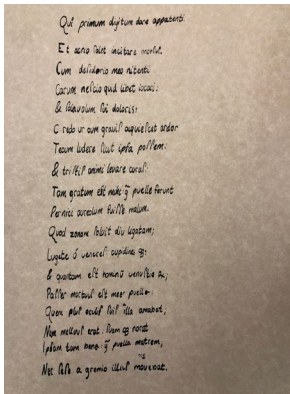 Qui primum digitum dare appatenti
Et acria solet incitare morsus.
Cum desiderio meo nitenti
Carum nescio quid libet iocari:
& solaciolum sui doloris:
Credo ut cum grauis acquiescet ardor
Tecum ludere sicut ipsa possem:
& tristis animi leuare curas:
Tam gratum est mihi q̃ puelle ferunt
Pernici aureolum fuisse malum.
Quod zonam soluit diu ligatam;
Lugete ó veneres cupidines q3:
& quantum est hominũ venustiorũ;
Passer mortuus est meæ puellæ.
Quem plus oculis suis illa amabat;
Nam mellitus erat: suam q3 norat
Ipsam tam bene: q̃ puella matrem;
Nec sese a gremio illius mouebat.